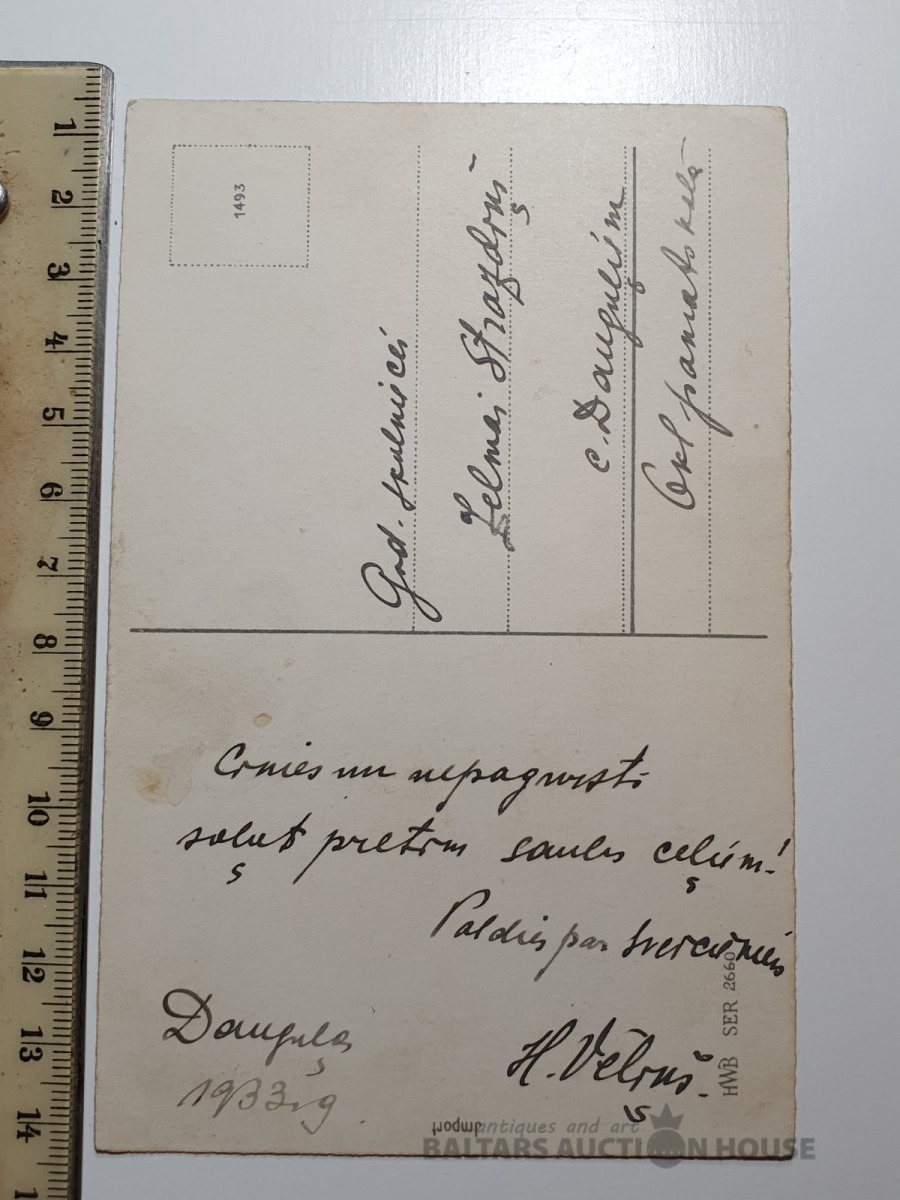 1
2
3
4
5
6
7
8
9
10
11
12
13
14
1493
God. skolnicei
Zelmai Strazdiņ
c. Dauguļiem
6kl pamatskolā
Cīnies un nepagursti
soļot pretim saules ceļiem!
Paldies par sveicieniem
Dauguļos
1933.g
H. Vēliņš.
HWB SER 2660
Import
antiques and art
BALTARS AUCTION HOUSE